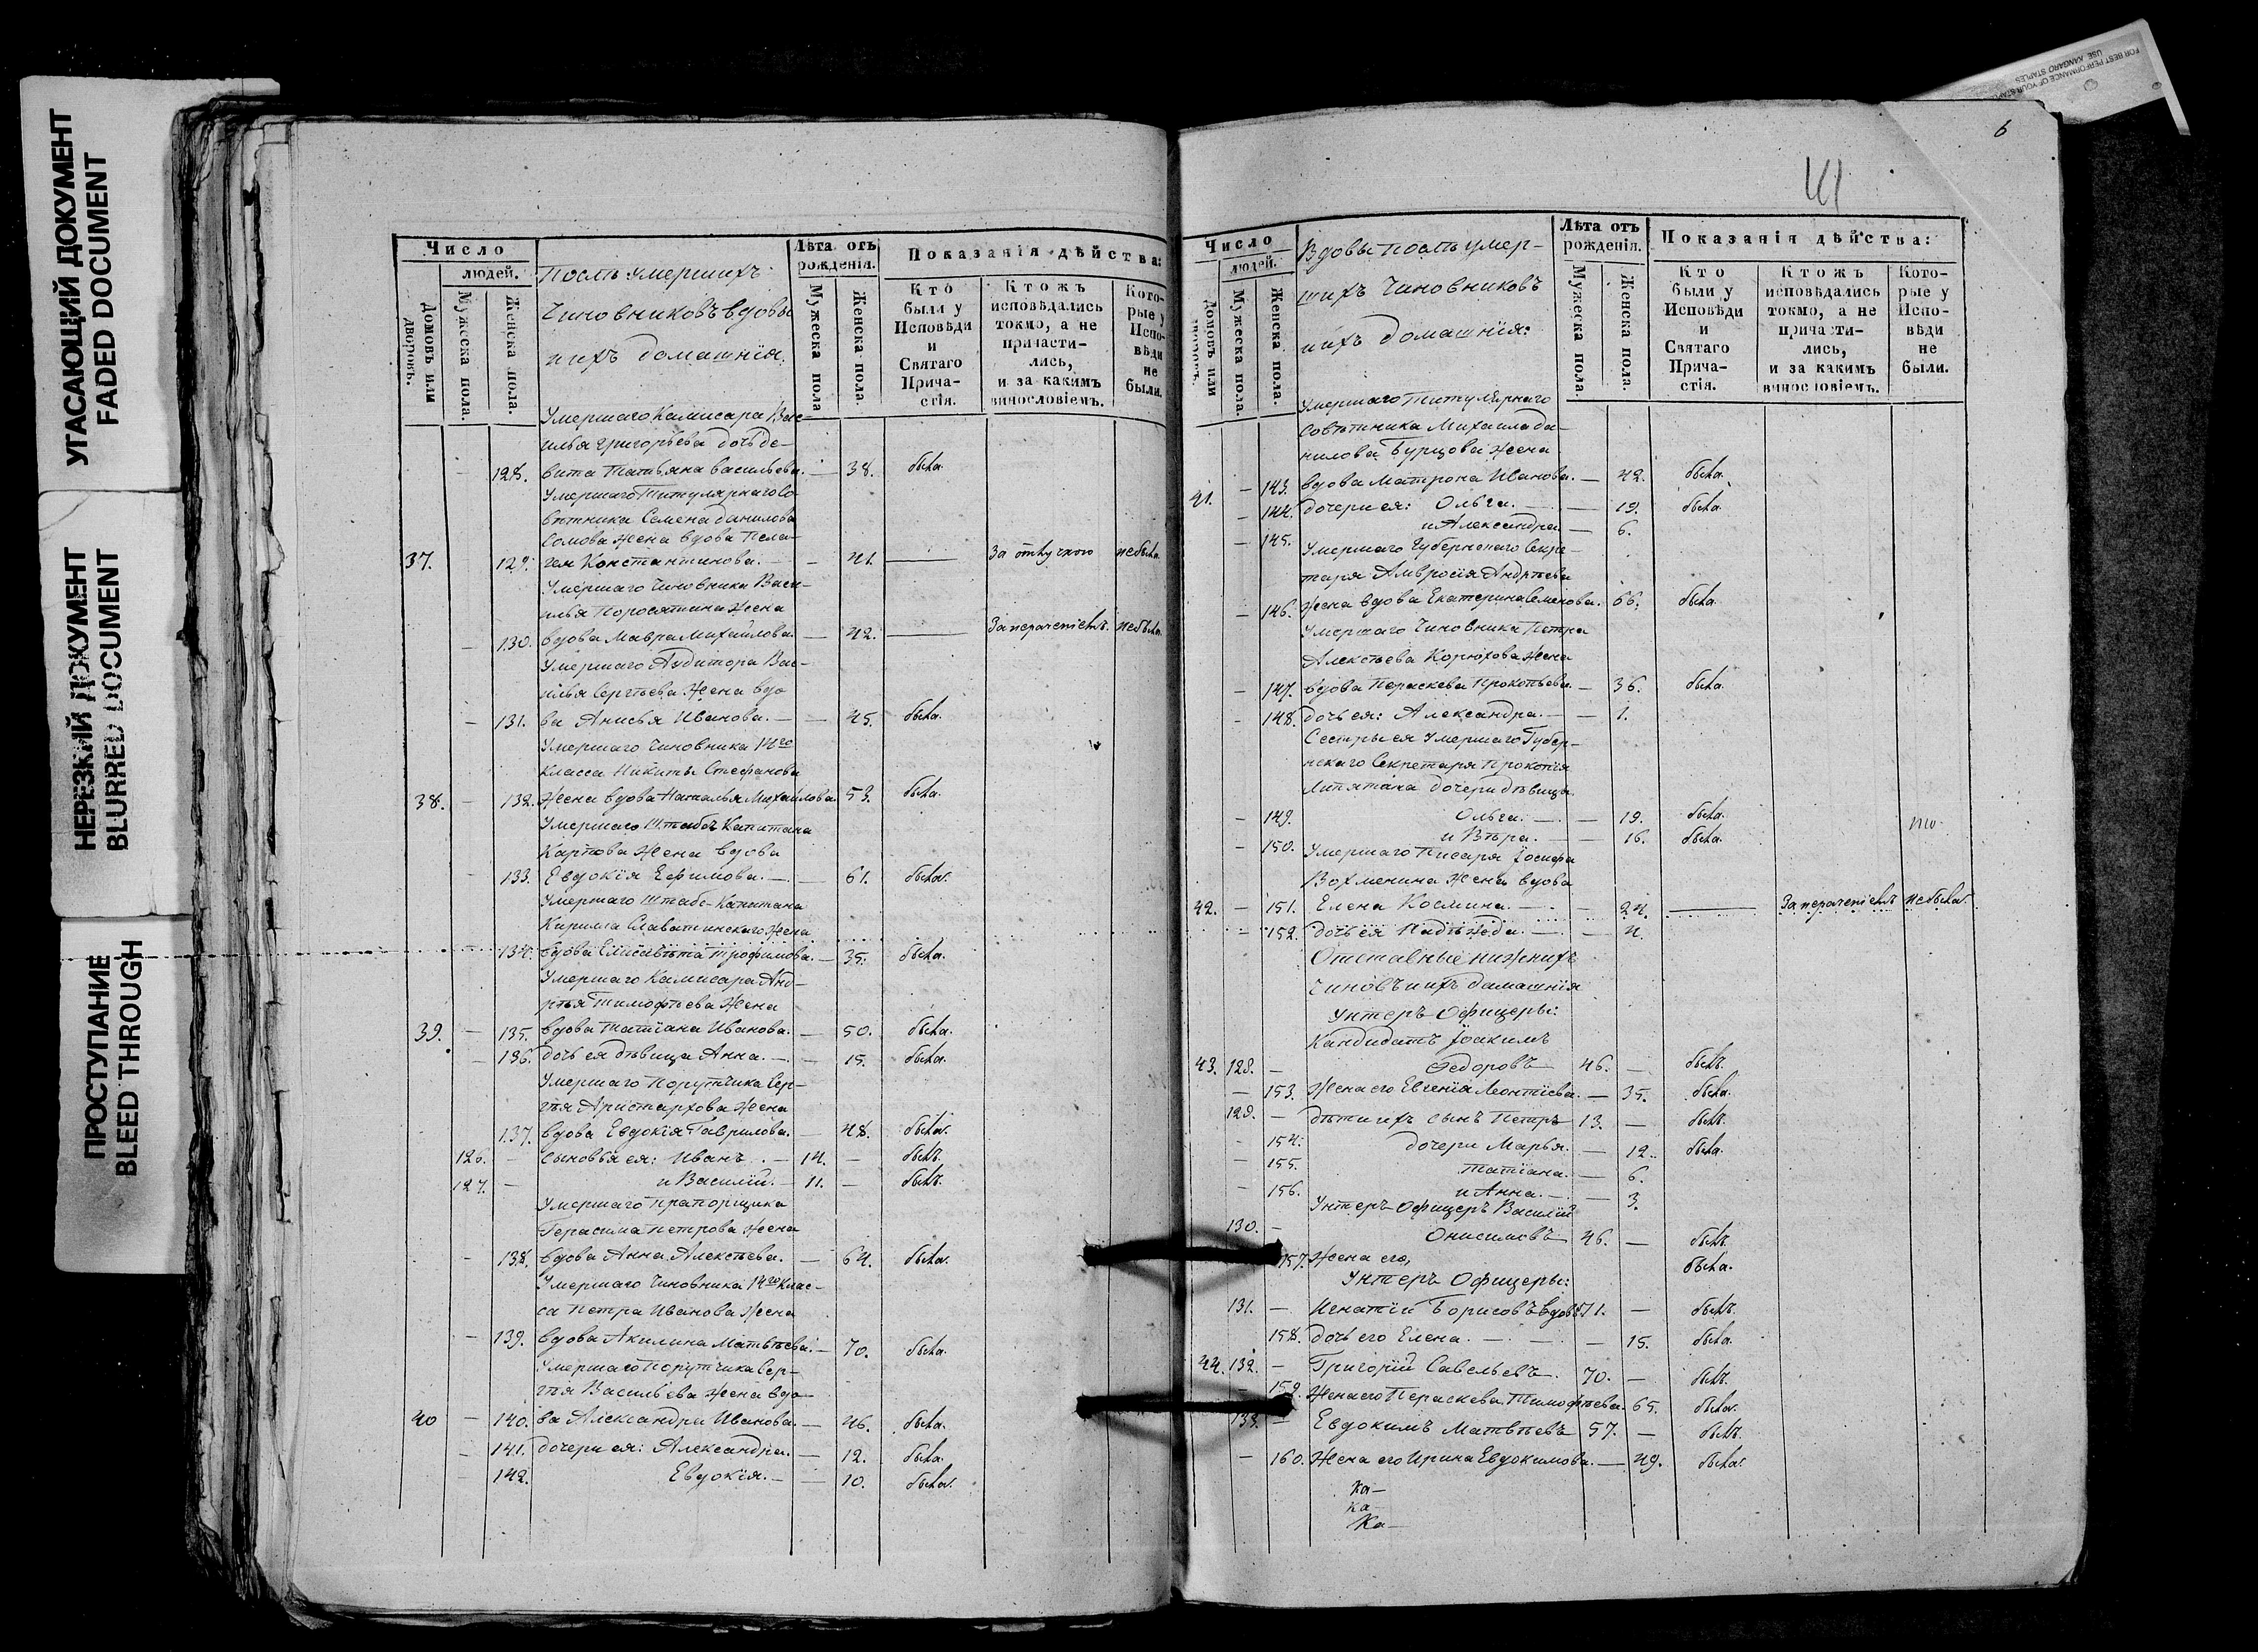 УГАСАЮЩИЙ ДОКУМЕНТ
FADED DOCUMENT
НЕРЕЗКИЙ ДОКУМЕНТ
BLURRED DOCUMENT
ПРОСТУПАНИЕ
BLEED THROUGH
Число
людей.
Домовъ или дворовъ.
Мужеска пола.
Женска пола.
Послѣ умершихъ
Чиновниковъ вдовы
и ихъ домашнія.
Лѣта отъ рожденія.
Мужеска пола
Женска пола.
Показанія дѣйства:
Кто были у Исповѣди и Святаго Прича-стія.
Ктожъ исповѣдались токмо, а не причасти-лись, и за какимъ винословіемъ.
Кото-рые у Испо-вѣди не были.
Умершаго Камисара Вас-
илья Григорьева дочь де-
128. вица Татьяна Васильева. — 38. была.
Умершаго Титулярнаго Со-
вѣтника Семена Данилова
Сомова жена вдова Пела-
37. 129. гея Константинова. — 41. — За отлучкою не была.
Умершаго Чиновника Васи-
лья Поросятина жена
— 130. вдова Мавра Михайлова. — 42. — За нераченіемъ. не была.
Умершаго Аудитора Вас-
илья Сергѣева жена вдо
— 131. ва Анисья Иванова. — — 45. была.
Умершаго Чиновника 14го
класса Никиты Стефанова
38. — 132. жена вдова Наталья Михайлова 53. была.
Умершаго Штабсъ Капитана
Карпова жена вдова
— 133. Евдокія Ефимова. — — 61. была.
Умершаго Штабс-Капитана
Кирила Славатинскаго жена
— 134. вдова Елисавѣта Трофимова. — 35. была.
Умершаго Камисара Анд-
рѣя Тимофѣева жена
39. — 135. вдова Татіана Иванова. — 50. была.
— 136. дочь ея дѣвица Анна. — — 15. была.
Умершаго Порутчика Сер-
гѣя Аристархова жена
137. вдова Евдокія Гаврилова. — 48. была.
126. — сыновья ея: Иванъ. — 14. — былъ.
127. — и Василій. — 11. — былъ.
Умершаго Прапорщика
Герасима Петрова жена
— 138. вдова Анна Алексѣева. — 64. была.
Умершаго Чиновника 14го Клас-
са Петра Иванова жена
— 139. вдова Акилина Матвѣева. — 70. была.
Умершаго Порутчика Сер-
гѣя Васильева жена вдо-
40 — 140. ва Александра Иванова. — 46. была.
— 141. дочери ея: Александра. — 12. была.
142. Евдокія. — — 10. была.
6
41
Число
людей.
Домовъ или
Мужеска пола.
Женска пола.
Вдовы послѣ умер-
шихъ Чиновниковъ
и ихъ домашнія:
Лѣта отъ рожденія.
Мужеска пола.
Женска пола.
Показанія дѣйства:
Кто были у Исповѣди и Святаго Прича-стія.
Ктожъ исповѣдались токмо, а не причасти-лись, и за какимъ винословіемъ.
Кото-рые у Испо-вѣди не были.
Умершаго Титулярнаго
Совѣтника Михаила Да-
нилова Бурцова жена
41. — 143. вдова Матрона Иванова. — 42. была.
— 144. дочери ея: Ольга. — — 19. была.
— 145. и Александра. — 6.
Умершаго Губернскаго Секре-
таря Амвросія Андрѣева
— 146. жена вдова Екатерина Семенова. 66. была.
Умершаго Чиновника Петра
Алексѣева Корюхова жена
— 147. вдова Пераскева Прокопьева. — 36. была.
— 148. дочь ея: Александра. — — 1.
Сестры ея Умершаго Губер-
нскаго Секретаря Прокопія
дочери дѣвицы
— 149. Ольга. — — 19. была.
— 150. и Вѣра. — — 16. была.
Умершаго Писаря Іосифа
Вохменина жена вдова
42. — 151. Елена Космина. — — 24. — За нераченіемъ не была.
— 152. дочь ея Надѣжда. — — 4.
Отставные нижнихъ
Чиновъ и ихъ домашнія
Унтеръ-Офицеры:
Кандидатъ Іоакимъ
43. 128. — Ѳедоровъ 46. — былъ.
— 153. жена его Евгенія Леонтіева. — 35. была.
129. — дѣти ихъ сынъ Петръ 13. — былъ.
— 154. дочери Марья. — 12. была.
— 155. Татіана. — 6.
— 156. и Анна. — — 3.
Унтеръ-Офицеръ Василій
130. — Онисимовъ 46. — былъ.
157. жена его, была.
Унтеръ Офицеры:
131. — Игнатій Борисовъ вдовъ 71. — былъ.
158. дочь его Елена. — — 15. была.
44. 132. — Григорій Савельевъ. 70. — былъ.
— 159. жена его Пераскева Тимофѣева. 65. была.
133. — Евдокимъ Матвѣевъ 57. — былъ.
— 160. жена его Ирина Евдокимова. — 49. была.
Ка—
Ка—
Ка—
FOR BEST PERFORMANCE OF YOUR STAPLER
USE KANGARO STAPLES